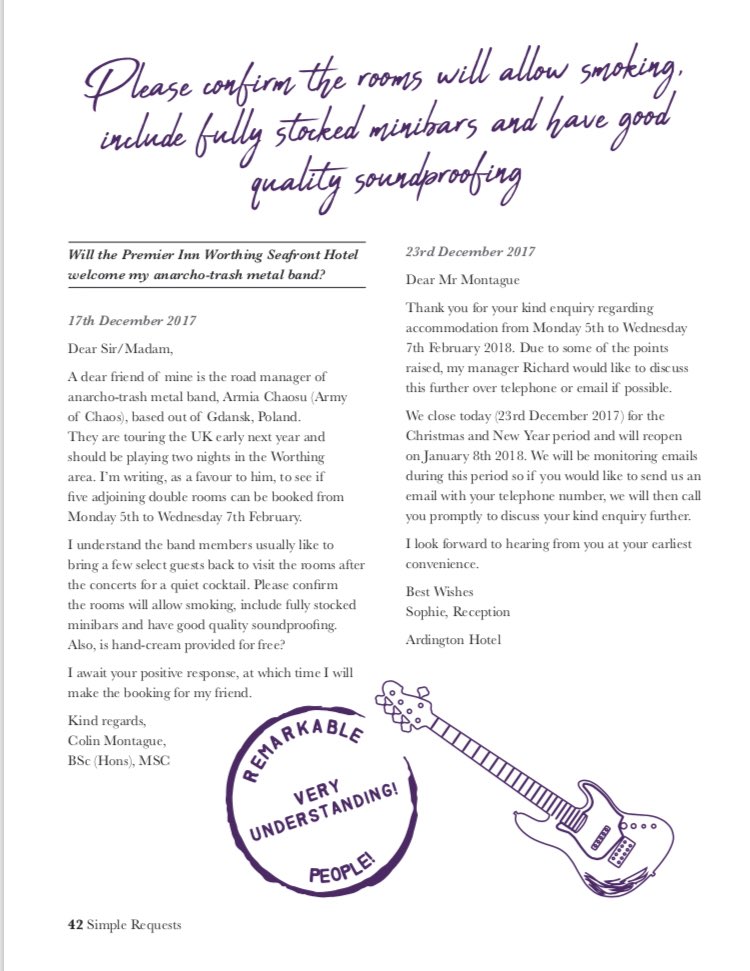 Please confirm the rooms will allow smoking,
include fully stocked minibars and have good
quality soundproofing
Will the Premier Inn Worthing Seafront Hotel
welcome my anarcho-trash metal band?
17th December 2017
Dear Sir/Madam,
A dear friend of mine is the road manager of
anarcho-trash metal band, Armia Chaosu (Army
of Chaos), based out of Gdansk, Poland.
They are touring the UK early next year and
should be playing two nights in the Worthing
area. I'm writing, as a favour to him, to see if
five adjoining double rooms can be booked from
Monday 5th to Wednesday 7th February.
I understand the band members usually like to
bring a few select guests back to visit the rooms after
the concerts for a quiet cocktail. Please confirm
the rooms will allow smoking, include fully stocked
minibars and have good quality soundproofing.
Also, is hand-cream provided for free?
I await your positive response, at which time I will
make the booking for my friend.
Kind regards,
Colin Montague,
BSc (Hons), MSC
23rd December 2017
Dear Mr Montague
Thank you for your kind enquiry regarding
accommodation from Monday 5th to Wednesday
7th February 2018. Due to some of the points
raised, my manager Richard would like to discuss
this further over telephone or email if possible.
We close today (23rd December 2017) for the
Christmas and New Year period and will reopen
on January 8th 2018. We will be monitoring emails
during this period so if you would like to send us an
email with your telephone number, we will then call
you promptly to discuss your kind enquiry further.
I look forward to hearing from you at your earliest
convenience.
Best Wishes
Sophie, Reception
Ardington Hotel
REMARKABLE
VERY
UNDERSTANDING!
PEOPLE!
42 Simple Requests